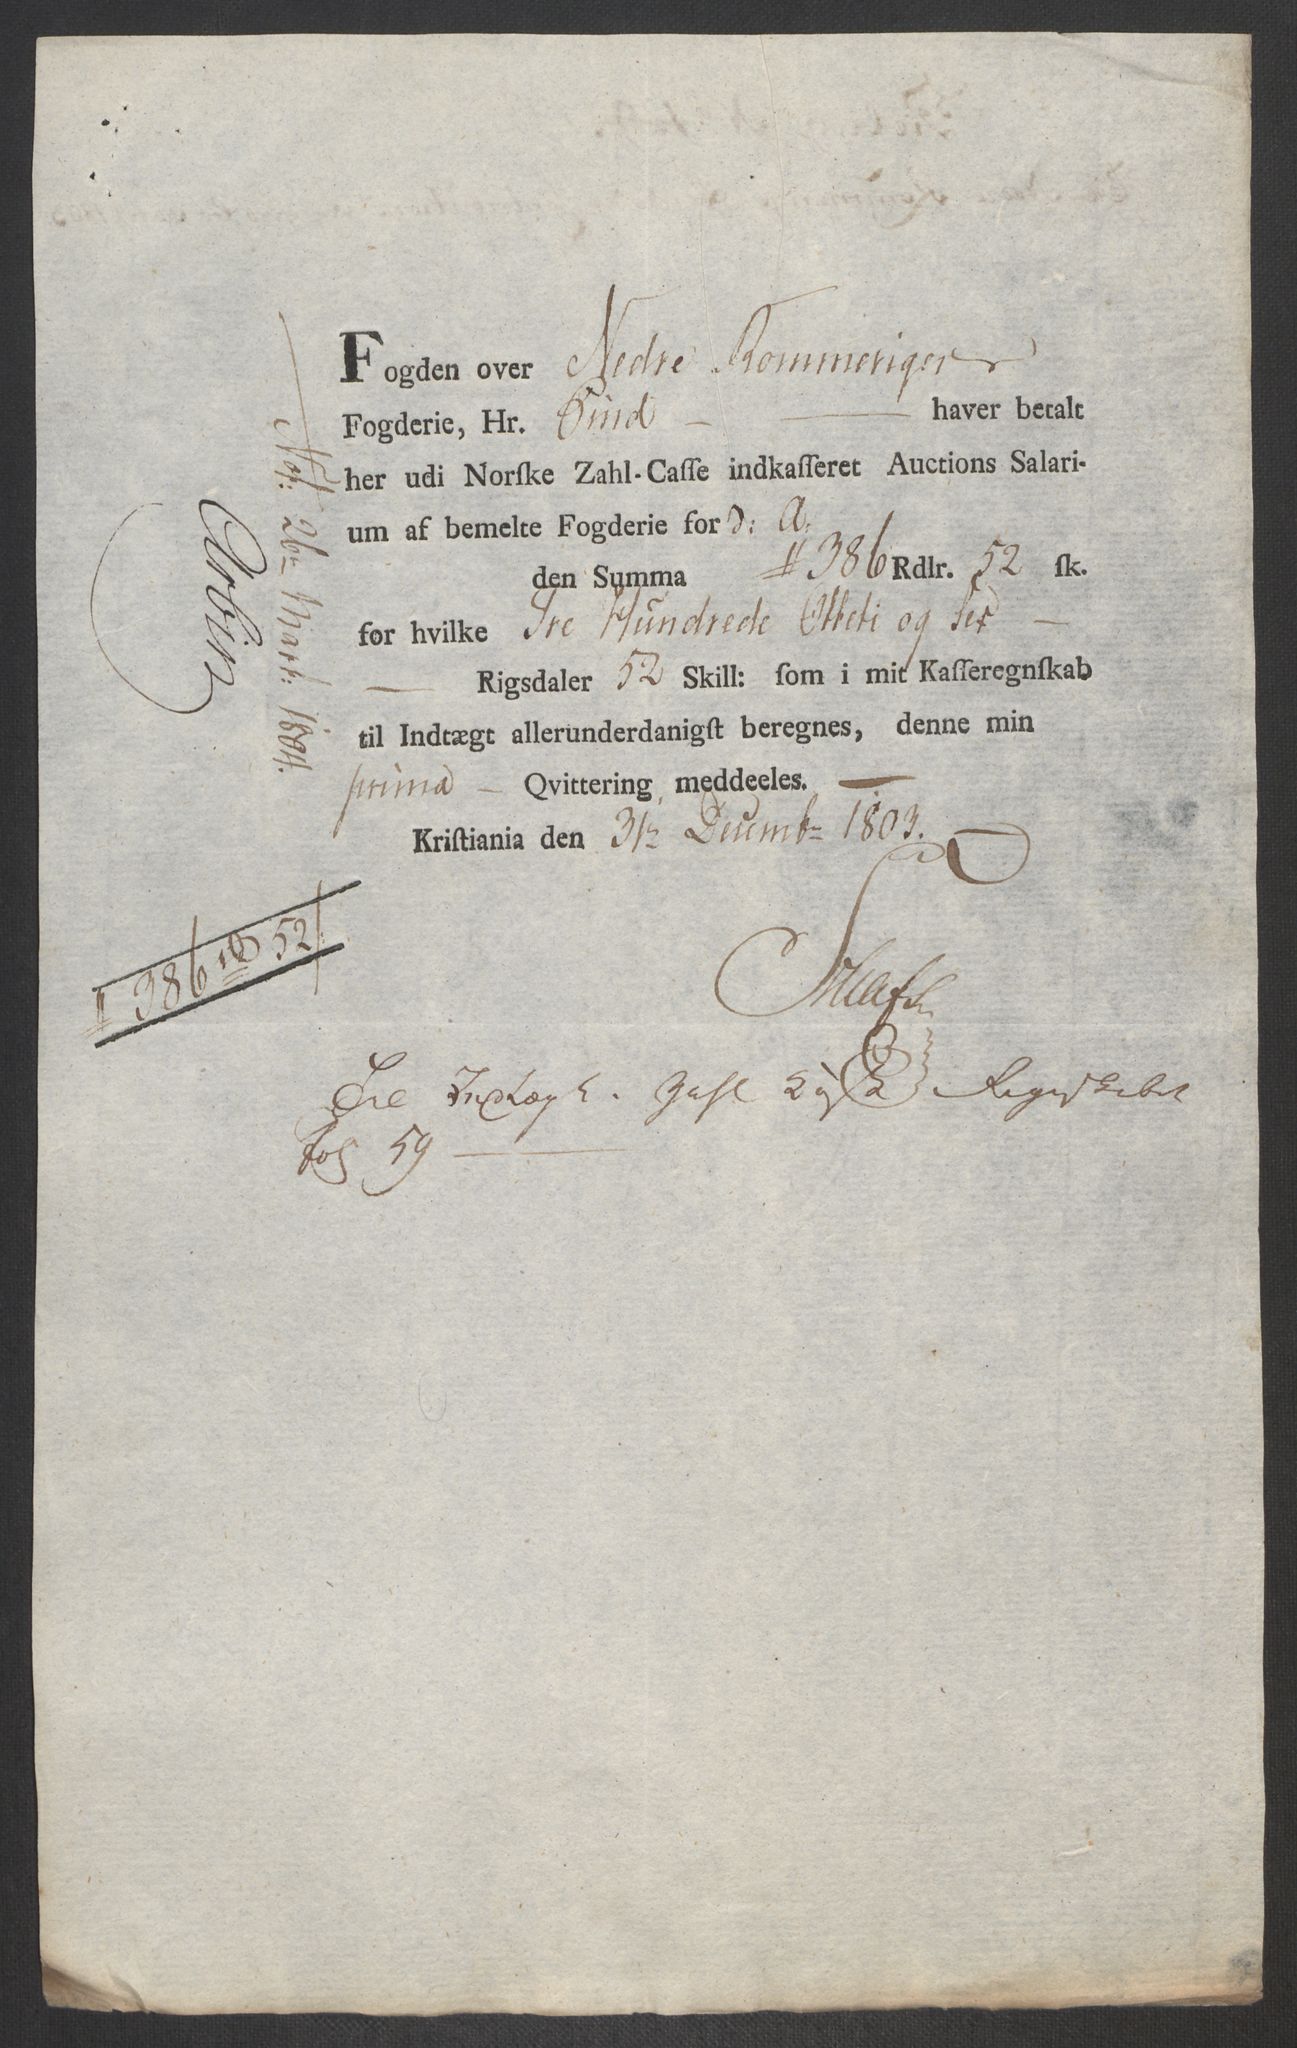 Fogden over Nedre Rommeriger
Fogderie, Hr. haver betalt
her udi Norſke Zahl-Caſſe indkaſſeret Auctions Salari-
um af bemelte Fogderie for d: A.
den Summa 386 Rdlr. 52 ſk.
før hvilke Tre Hundrede Otteti og Sex
Rigsdaler 52 Skill: ſom i mit Kaſſeregnſkab
til Indtægt allerunderdanigſt beregnes, denne min
prima Qvittering meddeeles.
Kriſtiania den 31 Decembr 1803.
386 rd 52
Regnskabet
Fol 59
Not: 26 Mart: 1804.